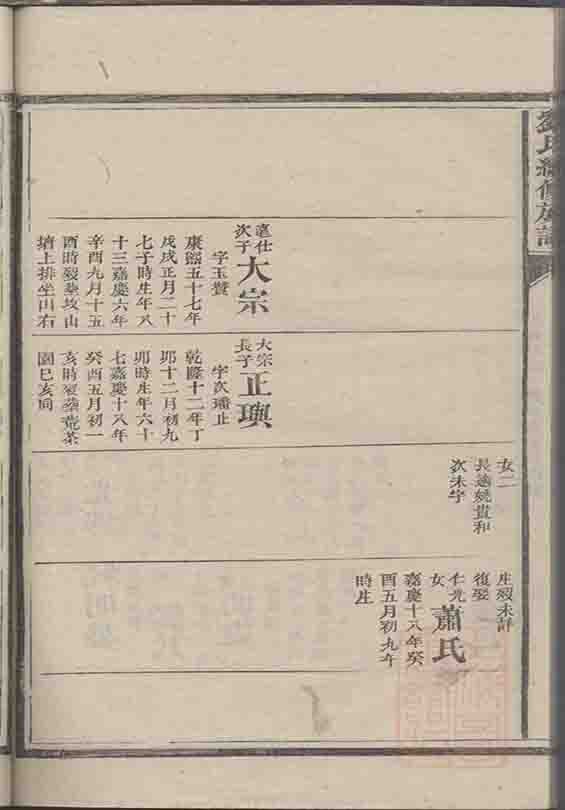 劉氏續修族譜
生歿未詳
復娶
仁光
女
蕭氏
嘉慶十八年癸
酉五月初九午
時生
女二
長適姚貴和
次未字
大宗
長子
正璵
字次璠止
乾隆十二年丁
卯十二月初九
卯時生年六十
七嘉慶十八年
癸酉五月初一
亥時歿葬荒茶
園巳亥向
次子
大宗
字玉贊
康熙五十七年
戊戌正月二十
七子時生年八
十三嘉慶六年
辛酉九月十五
酉時歿葬坟山
塘上排坐山右